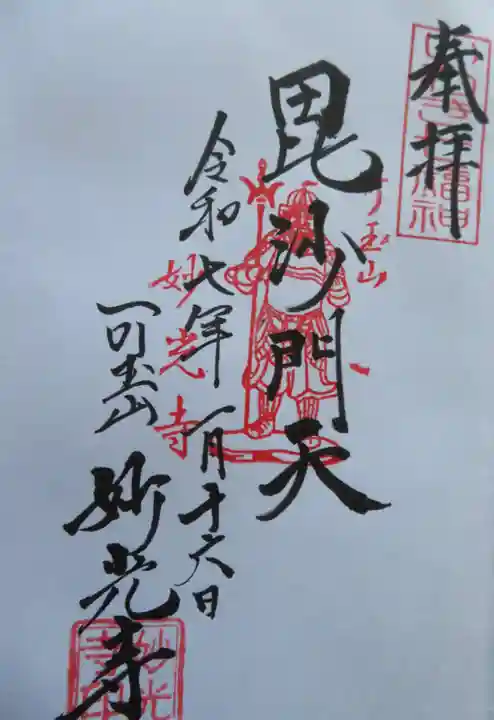 奉拝
毘沙門天
令和七年一月十六日
可玉山
妙光寺
妙光寺
玉山